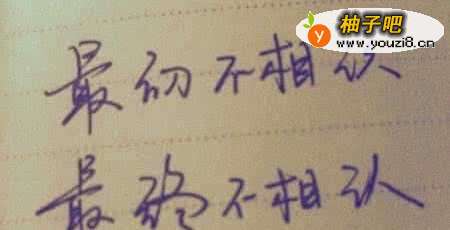 柚子吧
www.youzi8.cn
最初不相识
最终不相认